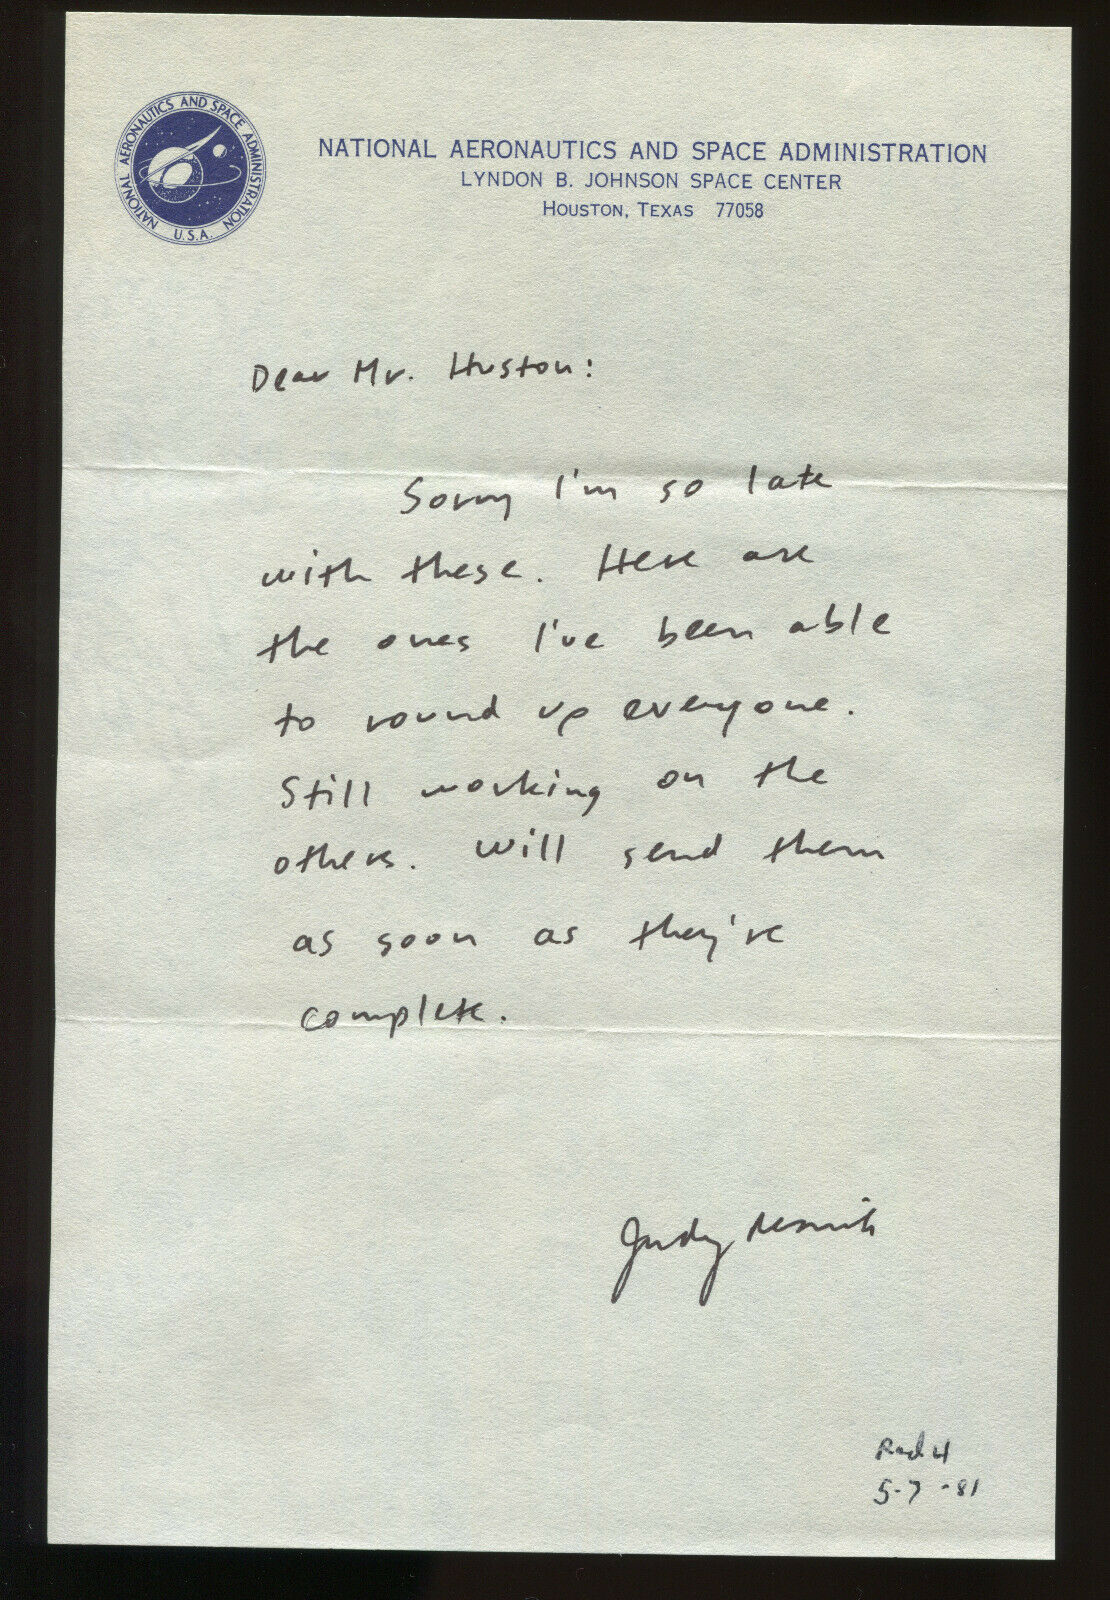 NATIONAL AERONAUTICS AND SPACE ADMINISTRATION
U.S.A.
NATIONAL AERONAUTICS AND SPACE ADMINISTRATION
LYNDON B. JOHNSON SPACE CENTER
HOUSTON, TEXAS 77058
Dear Mr. Huston:
Sorry I'm so late
with these. Here are
the ones I've been able
to round up everyone.
Still working on the
others. Will send them
as soon as they're
complete.
Judy Resnik
5-7-81